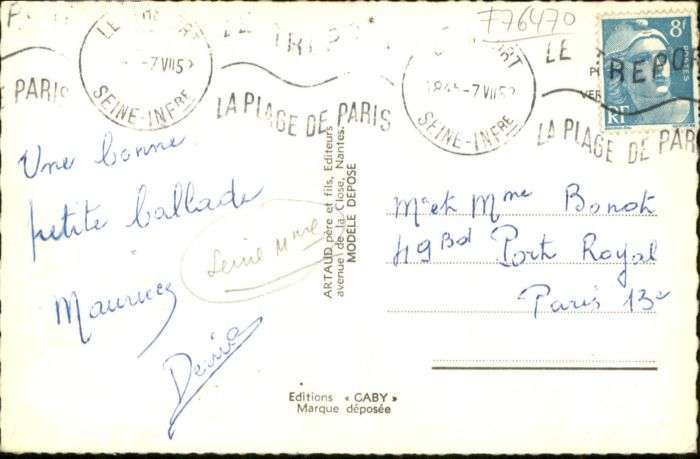 F76470
LE TREPORT
8F
RF
-7 VII 52
SEINE-INFRE
LE TREPORT
LA PLAGE DE PARIS
1845 -7 VII 52
SEINE-INFRE
LE TREPOR
LA PLAGE DE PAR
E PARIS
Une bonne
petite ballade
Maurice
Denise
Seine Mme
ARTAUD père et fils, Editeurs
avenue de la Close, Nantes.
MODÈLE DÉPOSÉ
Mr et Mme Bonot
49 Bd Port Royal
Paris 13e
Editions « GABY »
Marque déposée